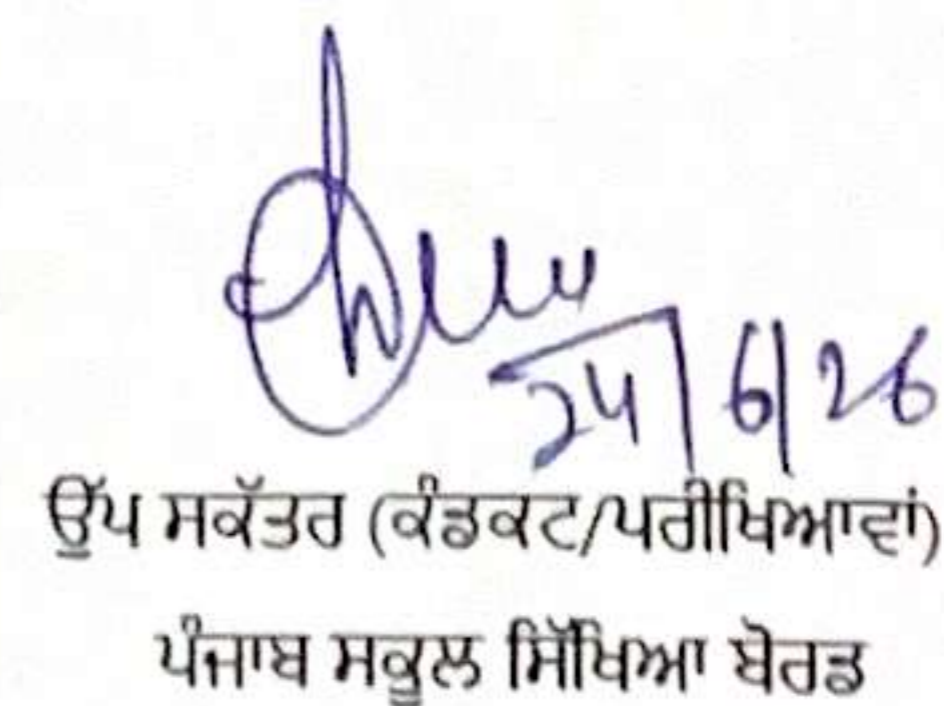 24/6/26
ਉੱਪ ਸਕੱਤਰ (ਕੰਡਕਟ/ਪਰੀਖਿਆਵਾਂ)
ਪੰਜਾਬ ਸਕੂਲ ਸਿੱਖਿਆ ਬੋਰਡ